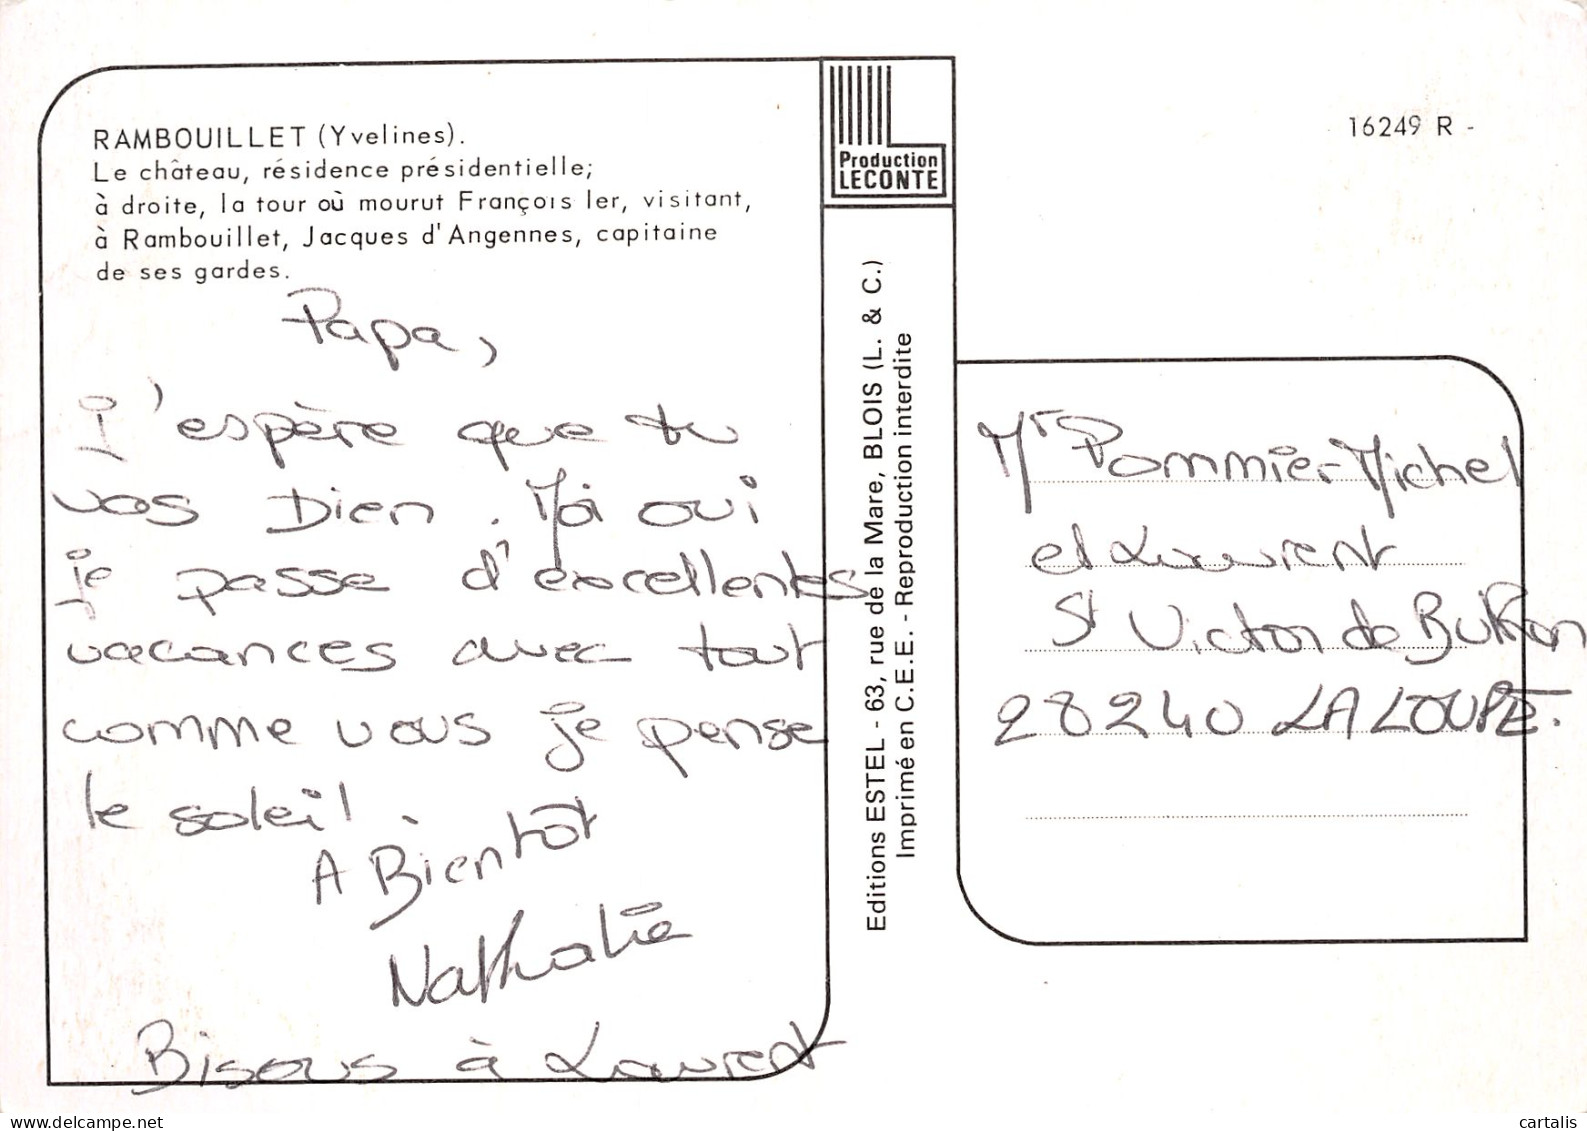 RAMBOUILLET (Yvelines).
Le château, résidence présidentielle;
à droite, la tour où mourut François Ier, visitant,
à Rambouillet, Jacques d'Angennes, capitaine
de ses gardes.
Papa,
J'espère que tu
vas Bien. Moi oui
je passe d'excellentes
vacances avec tout
comme vous je pense
le soleil.
A Bientôt
Nathalie
Bisous à Laurent
Production
LECONTE
Editions ESTEL - 63, rue de la Mare, BLOIS (L. & C.)
Imprimé en C.E.E. - Reproduction interdite
16249 R -
Mr Pommier Michel
et Laurent
St Victor de Buthon
28240 LA LOUPE.
delcampe.net
cartalis